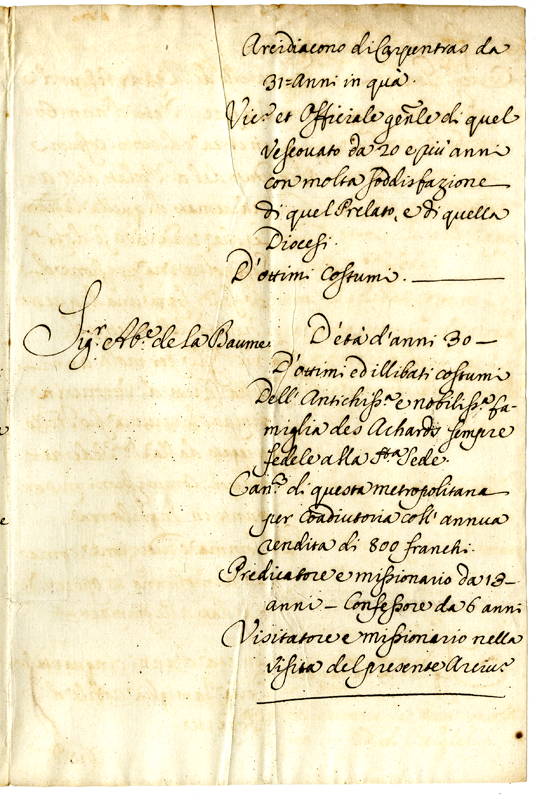 Arcidiacono di Carpentras da
31=Anni in quà.
Vic.º et Officiale gen̄le di quel
Vescovato da 20 e più anni
con molta soddisfazione
di quel Prelato, e di quella
Diocesi.
D'ottimi Costumi.
Sig.r Ab.e de la Baume
D'età d'anni 30 —
D'ottimi ed illibati costumi
Dell'Antichiss.a e nobiliss.a fa-
miglia des Achards sempre
fedele alla S.ta Sede.
Can.co di questa metropolitana
per Coadiutoria coll'annua
rendita di 800 franchi.
Predicatore e missionario da 13-
anni — Confessore da 6 anni
Visitatore e missionario nella
visita del presente Arciv.º